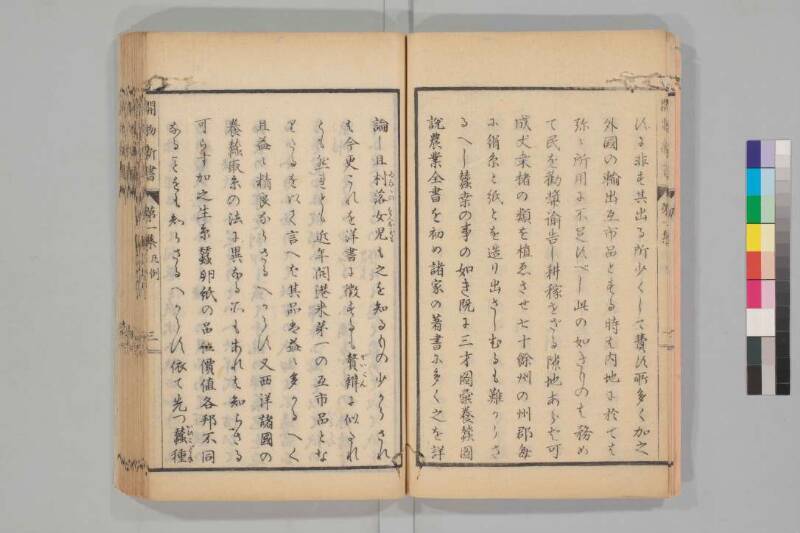 れに非も其出る所少くして費れ所多く加之
外國の輸出互市品ともする時も内地に於ても
弥々所用に不足れべし此の如きものも務め
て民を勧奬諭告し耕稼をざる隙地あらむ可
成丈桒楮の類を植ゑさせ七十餘州の州郡毎
に絹糸と紙とを造り出さしむるも難からさ
るへし蠶桒の事の如き既に三才圖彙養蠶圖
説農業全書を初め諸家の著書に多く之を詳
論し且村落女児も之を知るもの少からされ
も今更これを洋書に徴するも贅辨に似たれ
とも然れとも近年開港来第一の互市品とな
りたるを以て言へむ其品も益々多かるへく
且益々精良ならさるへからに又西洋諸國の
養蠶取糸の法に異なる所もあれも知らざる
可らす加之生糸蠶卵紙の品位價値各邦不同
なることをも知らさるへからに依て先つ蠶種
開物新書
第一集
凡例
三